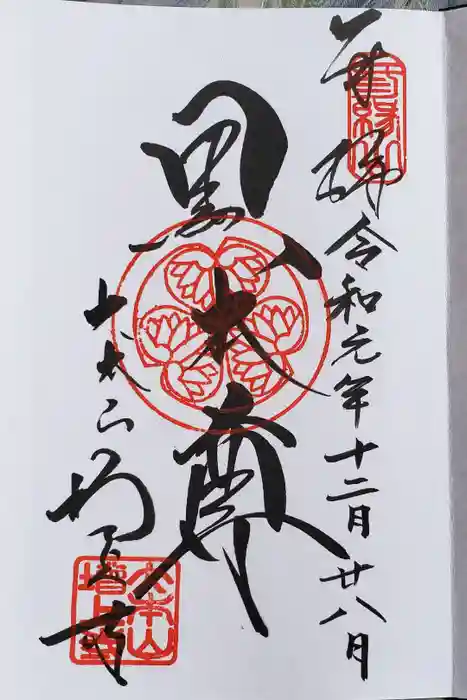 奉拝 令和元年十二月廿八月
黒本尊
大本山 増上寺
大本山増上寺